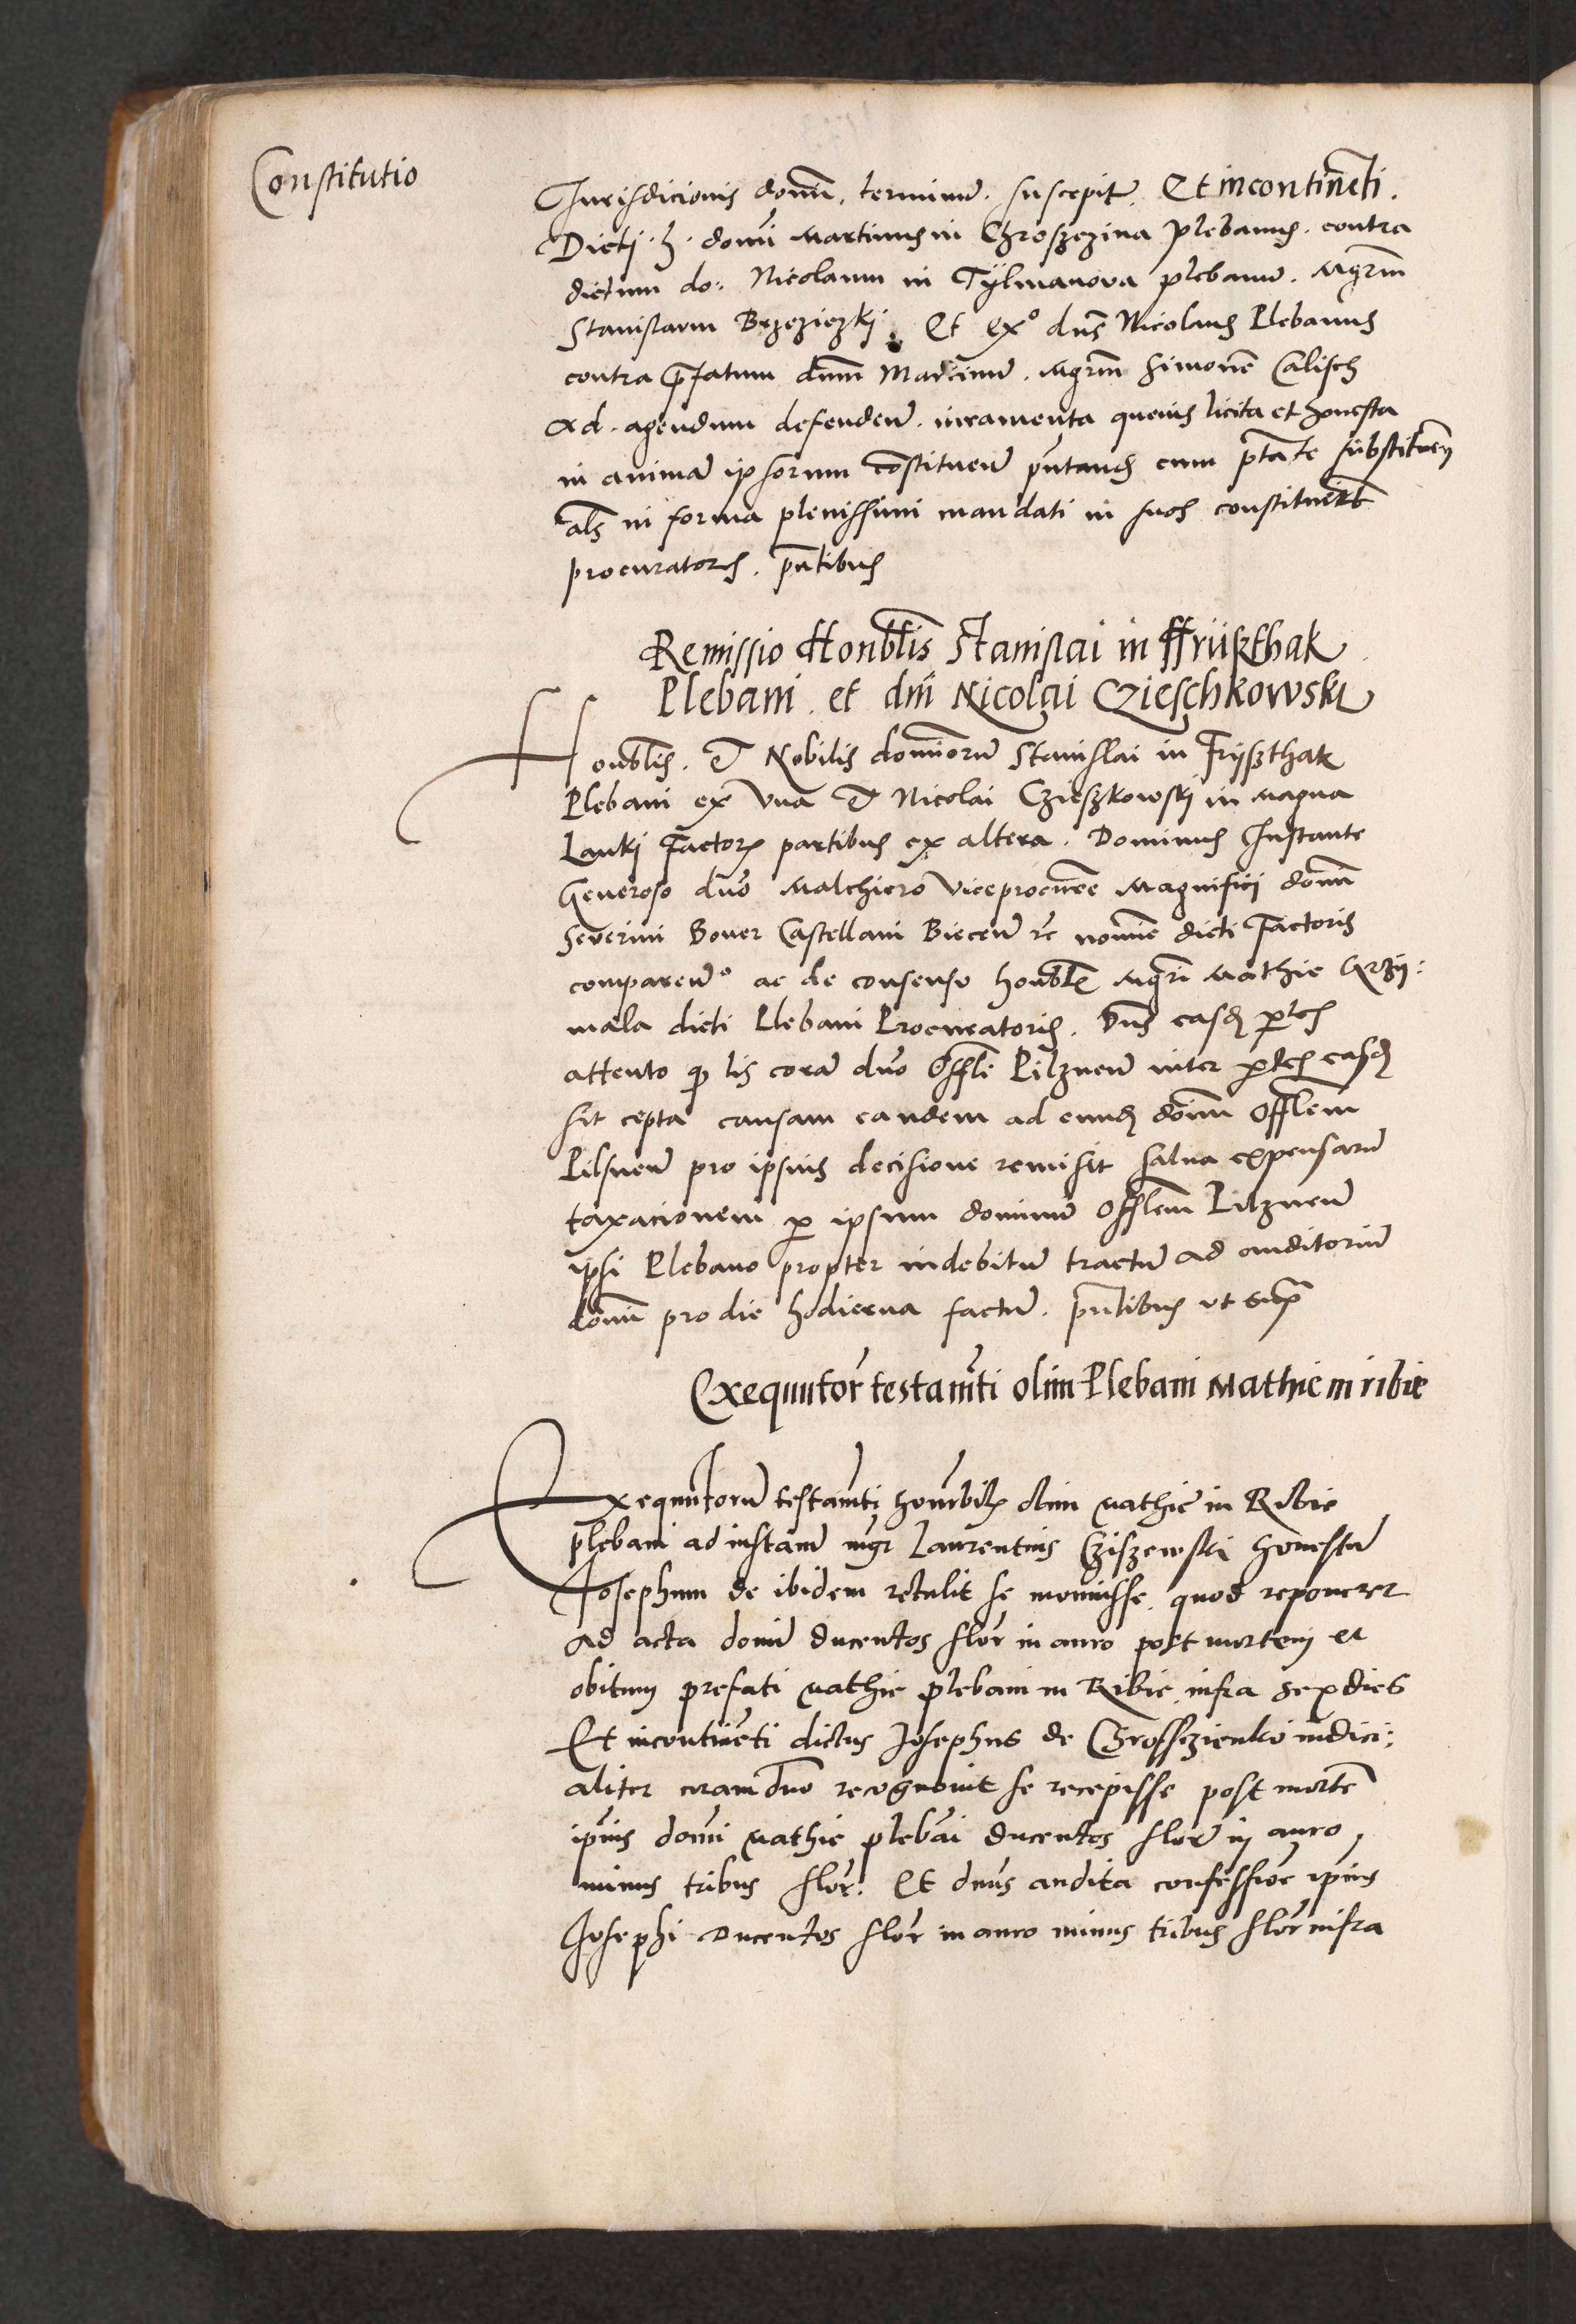 Constitutio
Jurisdicionis domī. terminū. suscepit. Et incontinēti.
Dicti. h. domi Martinus in Chroszczina plebanus. contra
dictum do: Nicolaum in Tylmanova plebanū. Mgrm̄
Stanislaum Brzeziczkj. Et exo dns Nicolaus Plebanus
contra p̄fatum dnm̄ Martinū. Mgrm̄ Simonē Calisch
Ad. agendum defendeñ. iuramenta queuis licita et honesta
in animā ipsorum cōstitueñ p̄standi cum p̄tate substituēn
als in forma plenissimi mandati in suos constituerūt
procuratores. p̄ntibus
Remissio Honblis Stanislai in Ffriisthak
Plebani. et dni Nicolai Czieschkowski
Honblis. et Nobilis dominorū Stanislai in Friisthak
Plebani ex vna et Nicolai Czieszkowskj in Magna
Lankj Factor partibus ex altera. Dominus Instante
Generoso dno Malchiero viceprocur̄e Magnifici domī
Severini Boner Castellani Bieceñ rē nomine dicti Factoris
compareño ac de consensu honbl Mgri Mathie Grzÿ:
mala dicti Plebani Procuratoris. Dns easd p̄tes
attento qp lis corā dno Offli Pilzneñ inter p̄tes easd
sit cepta causam eandem ad eund domī Offlem
Pilsneñ pro ipsius decisione remisit salua expensarū
taxacionem p ipsum dominū Offlem Pilzneñ
ipsi Plebano propter indebitū tractū ad auditoriū
domī pro die hodierna factū. p̄ntibus vt sup̄
Exequutor̄ testamt̄i olim Plebani Mathie in ribie
Exequutorū testamt̄i honorbil olim Mathie in Ribie
plebani ad instanc̄ mgr Laurentius Cziszewski honestū
Josephum de ibidem retulit se monuisse quod reponeret
ad acta domī ducentos flor̄ in auro post mortem et
obitum prefati Mathie plebani in Ribie infra sex dies
Et incontinēti dictus Josephus de Grosszienko iudici:
aliter coram dno recognouit se recepisse post mortē
ipsius domī Mathie plebāi ducentos flor̄ in auro
minus tribus flor̄. Et dnus audita confessiōe ipsius
Josephi Ducentos flor̄ in auro minus tribus flor̄ infra